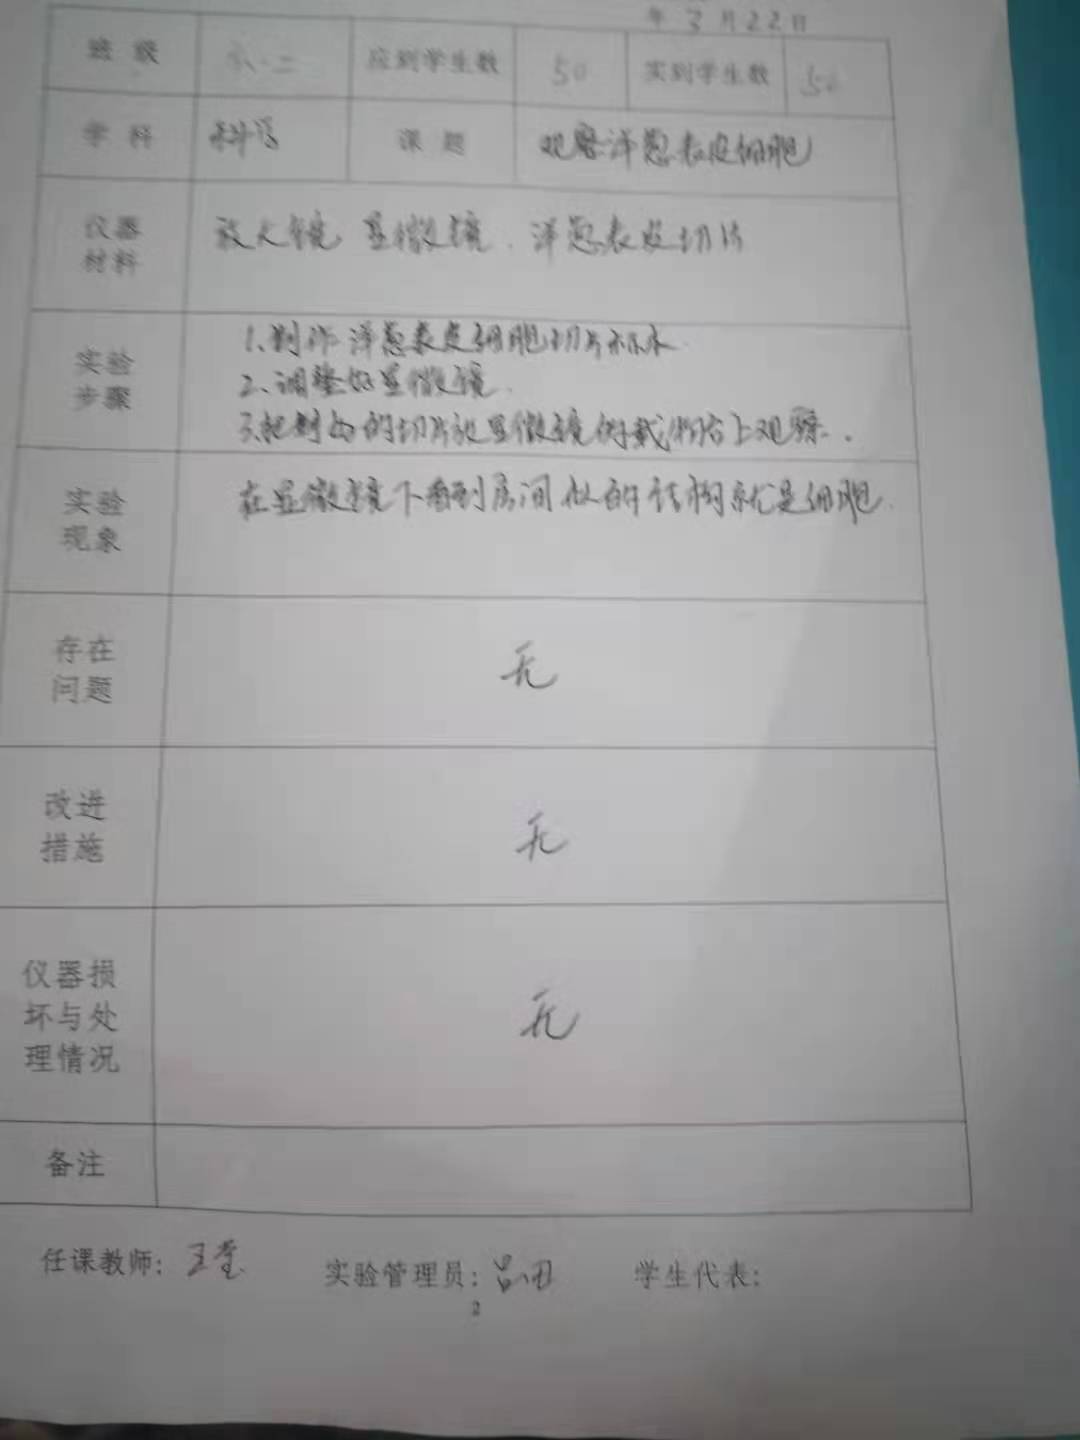 年 3 月 22 日
班 级 六·二 应到学生数 50 实到学生数 50
学 科 科学 课 题 观察洋葱表皮细胞
仪器
材料
放大镜 显微镜、洋葱表皮切片
实验
步骤
1、制作洋葱表皮细胞切片标本
2、调整好显微镜
3、把制的的切片放显微镜的载物台上观察.
实验
现象
在显微镜下看到房间似的结构就是细胞.
存在
问题
无
改进
措施
无
仪器损
坏与处
理情况
无
备注
任课教师: 王 实验管理员: 吕 学生代表:
2